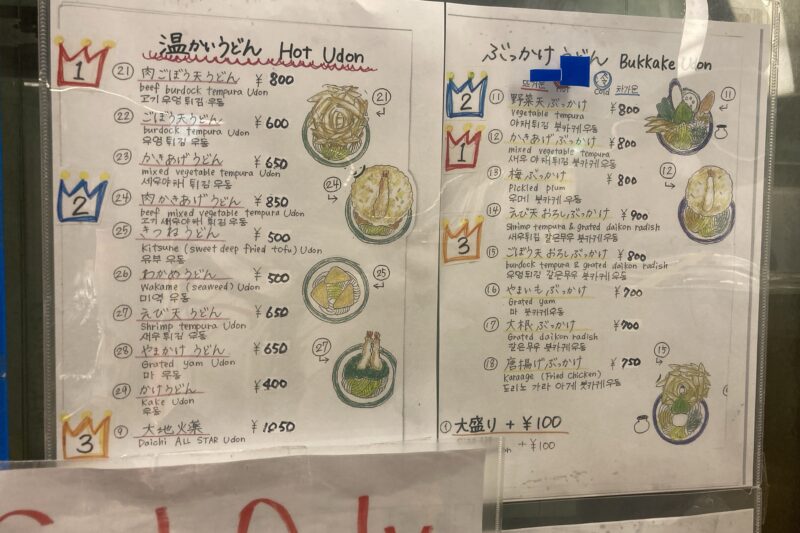 温かいうどん Hot Udon
1
㉑ 肉ごぼう天うどん ¥800
beef burdock tempura Udon
고기 우엉 튀김 우동
㉒ ごぼう天うどん ¥600
burdock tempura Udon
우엉 튀김 우동
㉓ かきあげうどん ¥650
mixed vegetable tempura Udon
새우야채 튀김 우동
2
㉔ 肉かきあげうどん ¥850
beef mixed vegetable tempura Udon
고기 새우야채 튀김 우동
㉕ きつねうどん ¥500
Kitsune (sweet deep fried tofu) Udon
유부 우동
㉖ わかめうどん ¥500
Wakame (seaweed) Udon
미역 우동
㉗ えび天うどん ¥650
Shrimp tempura Udon
새우 튀김 우동
㉘ やまかけうどん ¥650
Grated yam Udon
마 우동
㉙ かけうどん ¥400
Kake Udon
우동
3
⑨ 大地火薬 ¥1050
Daichi ALL STAR Udon
㉑
㉔
㉕
㉗
ぶっかけうどん Bukkake Udon
뜨거운 Hot 冷 Cold 차가운
2
⑪ 野菜天ぶっかけ ¥800
vegetable tempura
야채튀김 붓카케우동
1
⑫ かきあげぶっかけ ¥800
mixed vegetable tempura
새우 야채 튀김 붓카케우동
⑬ 梅ぶっかけ ¥800
Pickled plum
우메 붓카케우동
⑭ えび天おろしぶっかけ ¥900
Shrimp tempura & grated daikon radish
새우튀김 갈은무우 붓카케우동
3
⑮ ごぼう天おろしぶっかけ ¥800
burdock tempura & grated daikon radish
우엉튀김 갈은무우 붓카케우동
⑯ やまいもぶっかけ ¥700
Grated yam
마 붓카케우동
⑰ 大根ぶっかけ ¥700
Grated daikon radish
갈은무우 붓카케우동
⑱ 唐揚げぶっかけ ¥750
Karaage (Fried Chicken)
토리노 가라아게 붓카케우동
① 大盛り + ¥100
+ ¥100
⑪
⑫
⑮